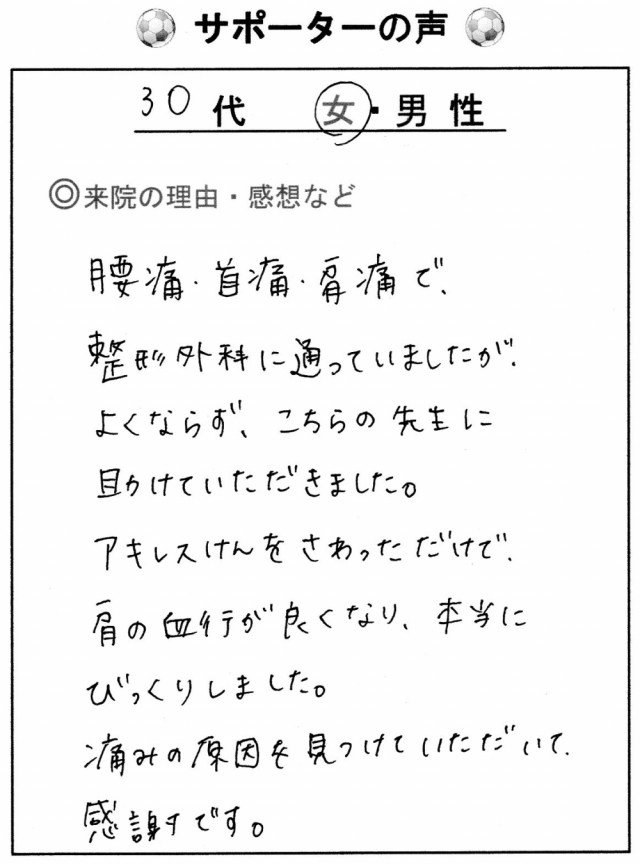 サポーターの声
30代 女・男性
◎来院の理由・感想など
腰痛・首痛・肩痛で、
整形外科に通っていましたが、
よくならず、こちらの先生に
助けていただきました。
アキレスけんをさわっただけで、
肩の血行が良くなり、本当に
びっくりしました。
痛みの原因を見つけていただいて、
感謝です。